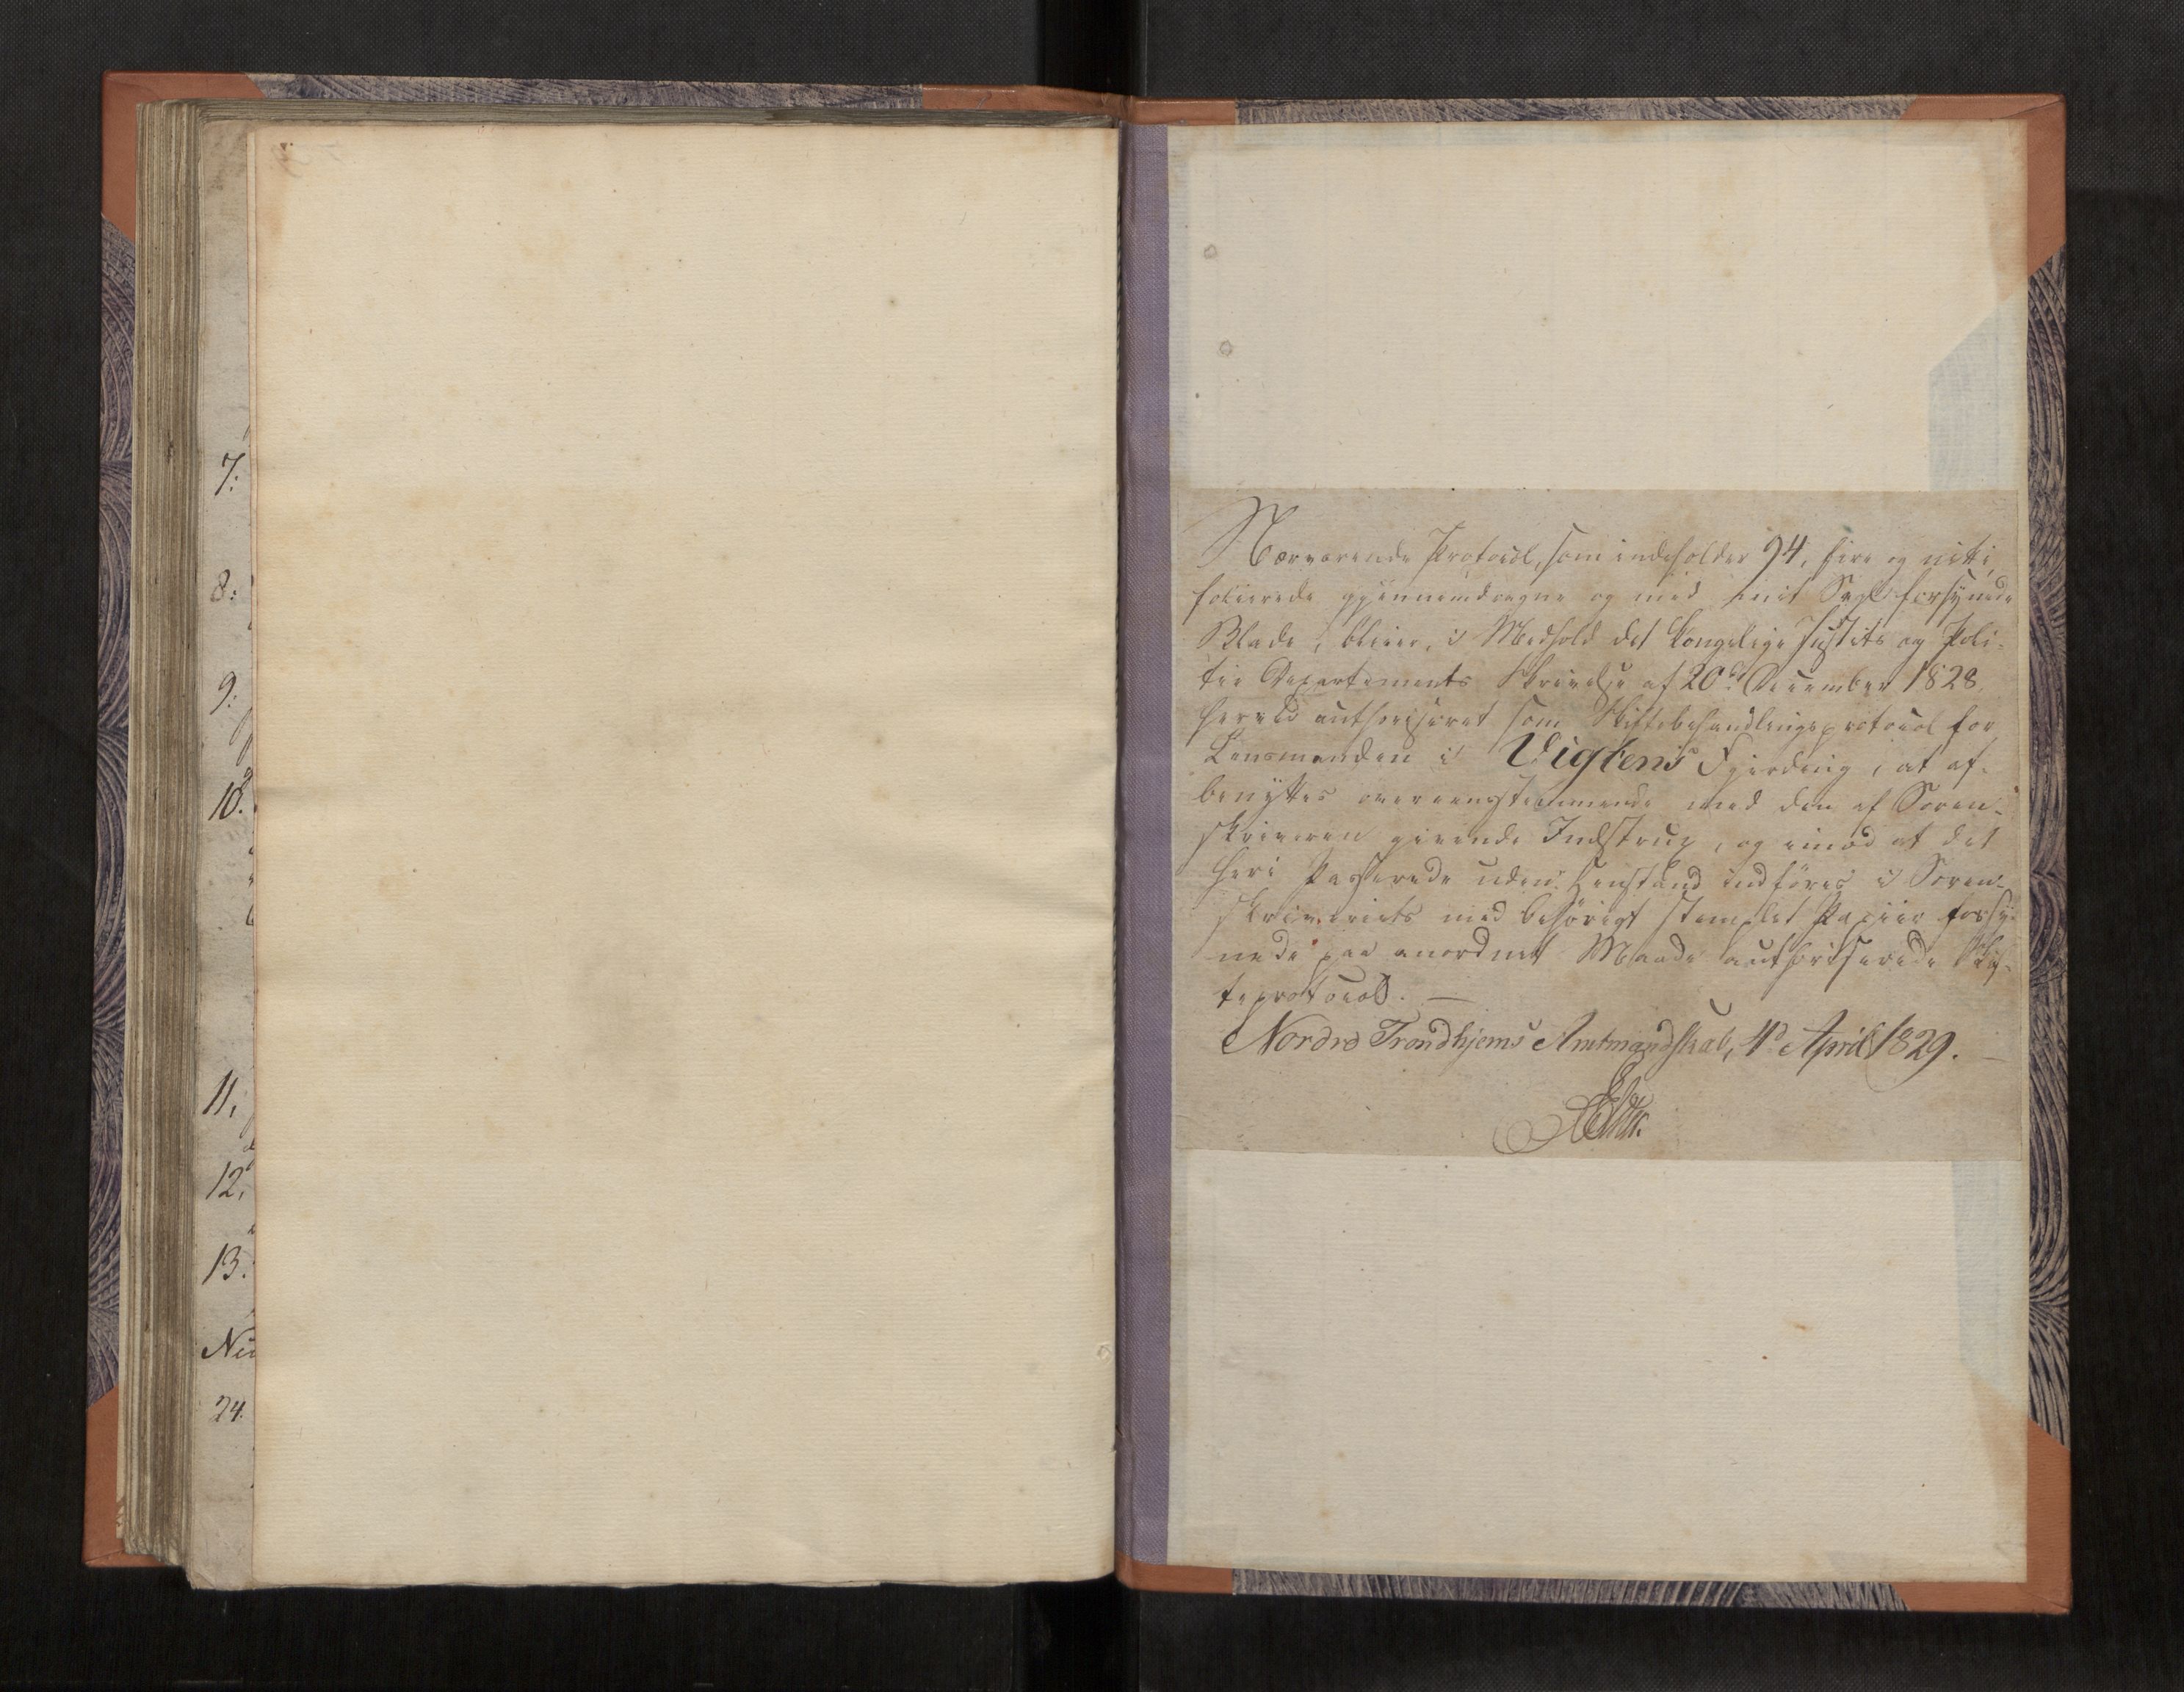 7:
8:
9:
10.
11,
12,
13.
24.
Nærværende Protocol, som indeholder 94, fire og nitti,
folierede gjennemdragne og med mit Segl forsynede
Blade, bliver, i Medhold det kongelige Justits og Poli-
tie Departements Skrivelse af 20d December 1828,
herved authoriseret som Skiftebehandlingsprotocol for
Lensmanden i Vigtens Fjerding, at af-
benyttes overeensstemmende med den af Soren-
skriveren givende Indstrux, og imod at det
heri Passerede uden Henstand indföres i Soren-
skriveriets med behörigt stemplet Papiir forsy-
nede paa anordnet Maade authoriserede Skif-
teprotocol. —
Nordre Trondhjems Amtmandskab, 11d April 1829. —